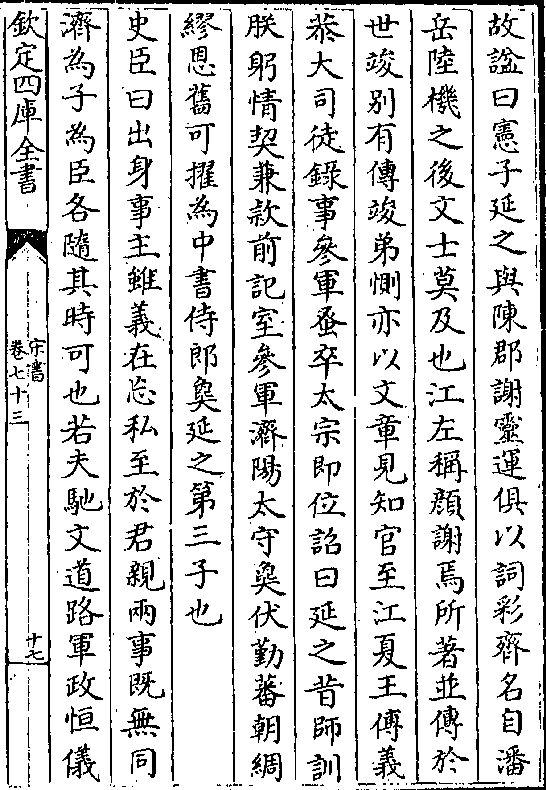 故諡曰憲子延之與陳郡謝靈運俱以詞彩齊名自潘
岳陸機之後文士莫及也江左稱顔謝焉所著並傳於
世竣别有傳竣弟惻亦以文章見知官至江夏王傅義
恭大司徒錄事參軍蚤卒太宗即位詔曰延之昔師訓
朕躬情契兼款前記室參軍濟陽太守㚟伏勤蕃朝綢
繆恩舊可擢為中書侍郎㚟延之第三子也
史臣曰出身事主雖義在忘私至於君親兩事既無同
濟為子為臣各隨其時可也若夫馳文道路軍政恒儀
欽定四庫全書
宋書
卷七十三
十七